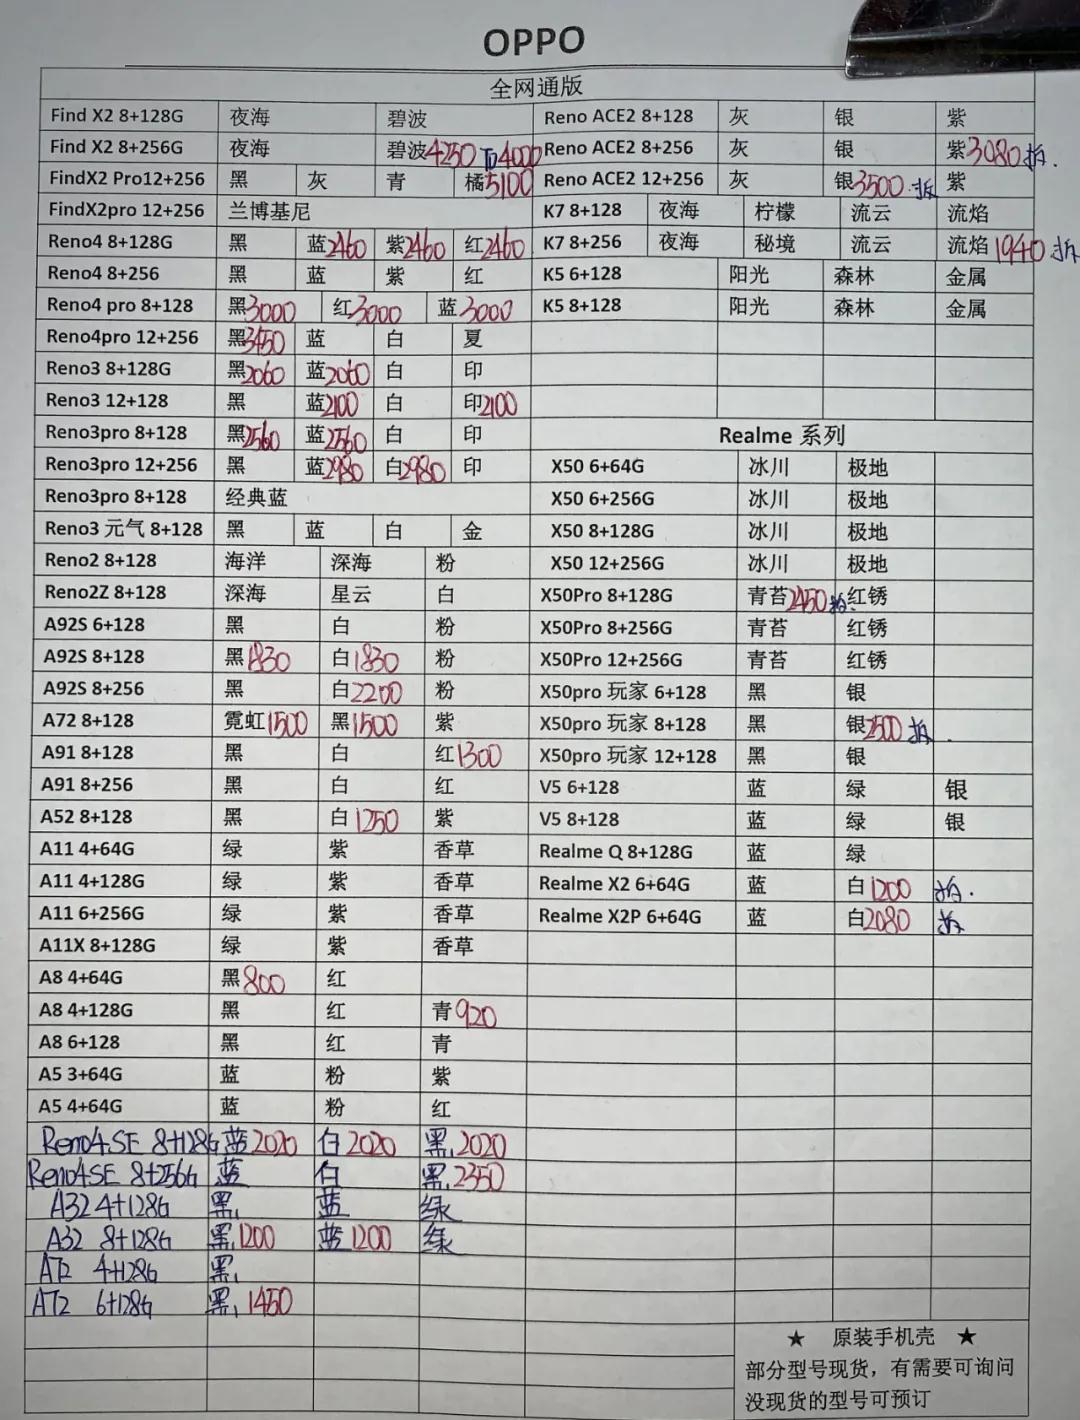 OPPO
全网通版
Find X2 8+128G 夜海 碧波 Reno ACE2 8+128 灰 银 紫
Find X2 8+256G 夜海 碧波4250 下4000 Reno ACE2 8+256 灰 银 紫3080拆.
FindX2 Pro12+256 黑 灰 青 橘5100 Reno ACE2 12+256 灰 银3500.拆 紫
FindX2pro 12+256 兰博基尼 K7 8+128 夜海 柠檬 流云 流焰
Reno4 8+128G 黑 蓝2460 紫2460 红2460 K7 8+256 夜海 秘境 流云 流焰1940拆
Reno4 8+256 黑 蓝 紫 红 K5 6+128 阳光 森林 金属
Reno4 pro 8+128 黑3000 红3000 蓝3000 K5 8+128 阳光 森林 金属
Reno4pro 12+256 黑3450 蓝 白 夏
Reno3 8+128G 黑2060 蓝2060 白 印
Reno3 12+128 黑 蓝2100 白 印2100
Reno3pro 8+128 黑2560 蓝2560 白 印 Realme 系列
Reno3pro 12+256 黑 蓝2980 白2980 印 X50 6+64G 冰川 极地
Reno3pro 8+128 经典蓝 X50 6+256G 冰川 极地
Reno3 元气 8+128 黑 蓝 白 金 X50 8+128G 冰川 极地
Reno2 8+128 海洋 深海 粉 X50 12+256G 冰川 极地
Reno2Z 8+128 深海 星云 白 X50Pro 8+128G 青苔2450拆. 红锈
A92S 6+128 黑 白 粉 X50Pro 8+256G 青苔 红锈
A92S 8+128 黑1830 白1830 粉 X50Pro 12+256G 青苔 红锈
A92S 8+256 黑 白2200 粉 X50pro 玩家 6+128 黑 银
A72 8+128 霓虹1500 黑1500 紫 X50pro 玩家 8+128 黑 银2500 拆.
A91 8+128 黑 白 红1300 X50pro 玩家 12+128 黑 银
A91 8+256 黑 白 红 V5 6+128 蓝 绿 银
A52 8+128 黑 白1250 紫 V5 8+128 蓝 绿 银
A11 4+64G 绿 紫 香草 Realme Q 8+128G 蓝 绿
A11 4+128G 绿 紫 香草 Realme X2 6+64G 蓝 白1200 拆.
A11 6+256G 绿 紫 香草 Realme X2P 6+64G 蓝 白2080 拆
A11X 8+128G 绿 紫 香草
A8 4+64G 黑800 红
A8 4+128G 黑 红 青920
A8 6+128 黑 红 青
A5 3+64G 蓝 粉 紫
A5 4+64G 蓝 粉 红
Reno4SE 8+128G 蓝2020 白2020 黑2020
Reno4SE 8+256G 蓝 白 黑2350
A32 4+128G 黑 蓝 绿
A32 8+128G 黑1200 蓝1200 绿
A72 4+128G 黑
A72 6+128G 黑 1450
★ 原装手机壳 ★
部分型号现货，有需要可询问
没现货的型号可预订